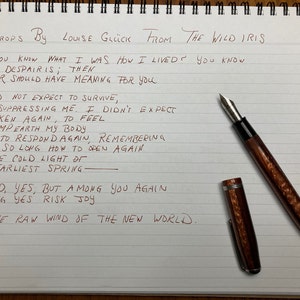 DROPS BY LOUISE GLÜCK FROM THE WILD IRIS
YOU KNOW WHAT I WAS HOW I LIVED? YOU KNOW
DESPAIR IS; THEN
R SHOULD HAVE MEANING FOR YOU.
NOT EXPECT TO SURVIVE,
SUPPRESSING ME. I DIDN'T EXPECT
KEN AGAIN, TO FEEL
MP EARTH MY BODY
TO RESPOND AGAIN, REMEMBERING
SO LONG HOW TO OPEN AGAIN
E COLD LIGHT OF
EARLIEST SPRING
D, YES, BUT AMONG YOU AGAIN
G YES RISK JOY
E RAW WIND OF THE NEW WORLD.